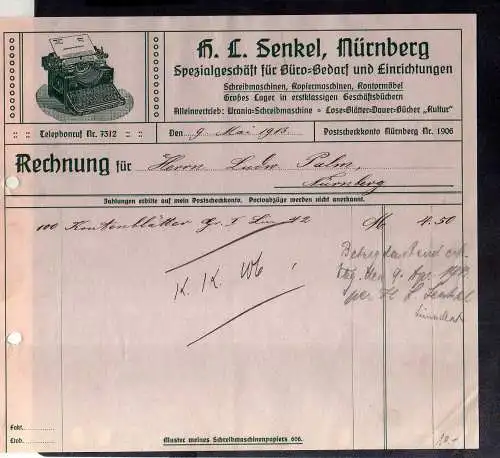 H. L. Senkel, Nürnberg
Spezialgeschäft für Büro-Bedarf und Einrichtungen
Schreibmaschinen, Kopiermaschinen, Kontormöbel
Großes Lager in erstklassigen Geschäftsbüchern
Alleinvertrieb: Urania-Schreibmaschine - Lose-Blätter-Dauer-Bücher „Kultur"
Telephonruf Nr. 7312
Den 9. Mai 1913
Postscheckkonto Nürnberg Nr. 1906
Rechnung für Herrn Ludw. Palm,
Nürnberg
Zahlungen erbitte auf mein Postscheckkonto. Portoabzüge werden nicht anerkannt.
100 Kontenblätter Gr. I Lin. 2 M 4.50
Betrag dankend
K. K. 106
per H. L. Senkel
Fakt.
Ctob.
Muster meines Schreibmaschinenpapiers 606.
10.-